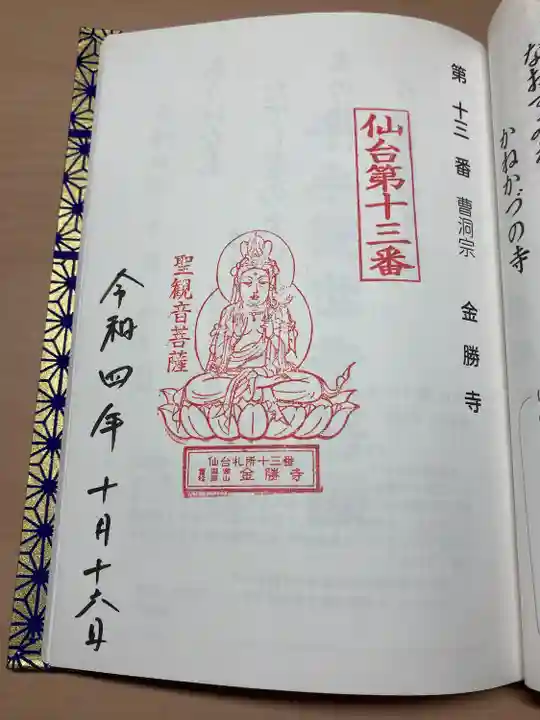 かねかづの寺
第十三番 曹洞宗 金勝寺
仙台第十三番
聖観音菩薩
仙台札所十三番
金勝寺
令和四年十月十六日